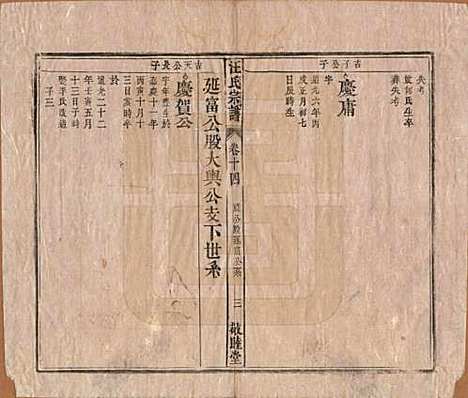 吉子公子
失考
葬失考
慶庸
字
道光六年丙
戌正月初七
日辰時
汪氏宗譜
卷十四
三
敬睦堂
延富公股大興公支下世系
吉天公長子
慶賀公
字年
嘉慶十一年
丙寅十月十
三日亥時
於
道光二十二
年壬寅五月
十三日子時
娶李氏改適
子三